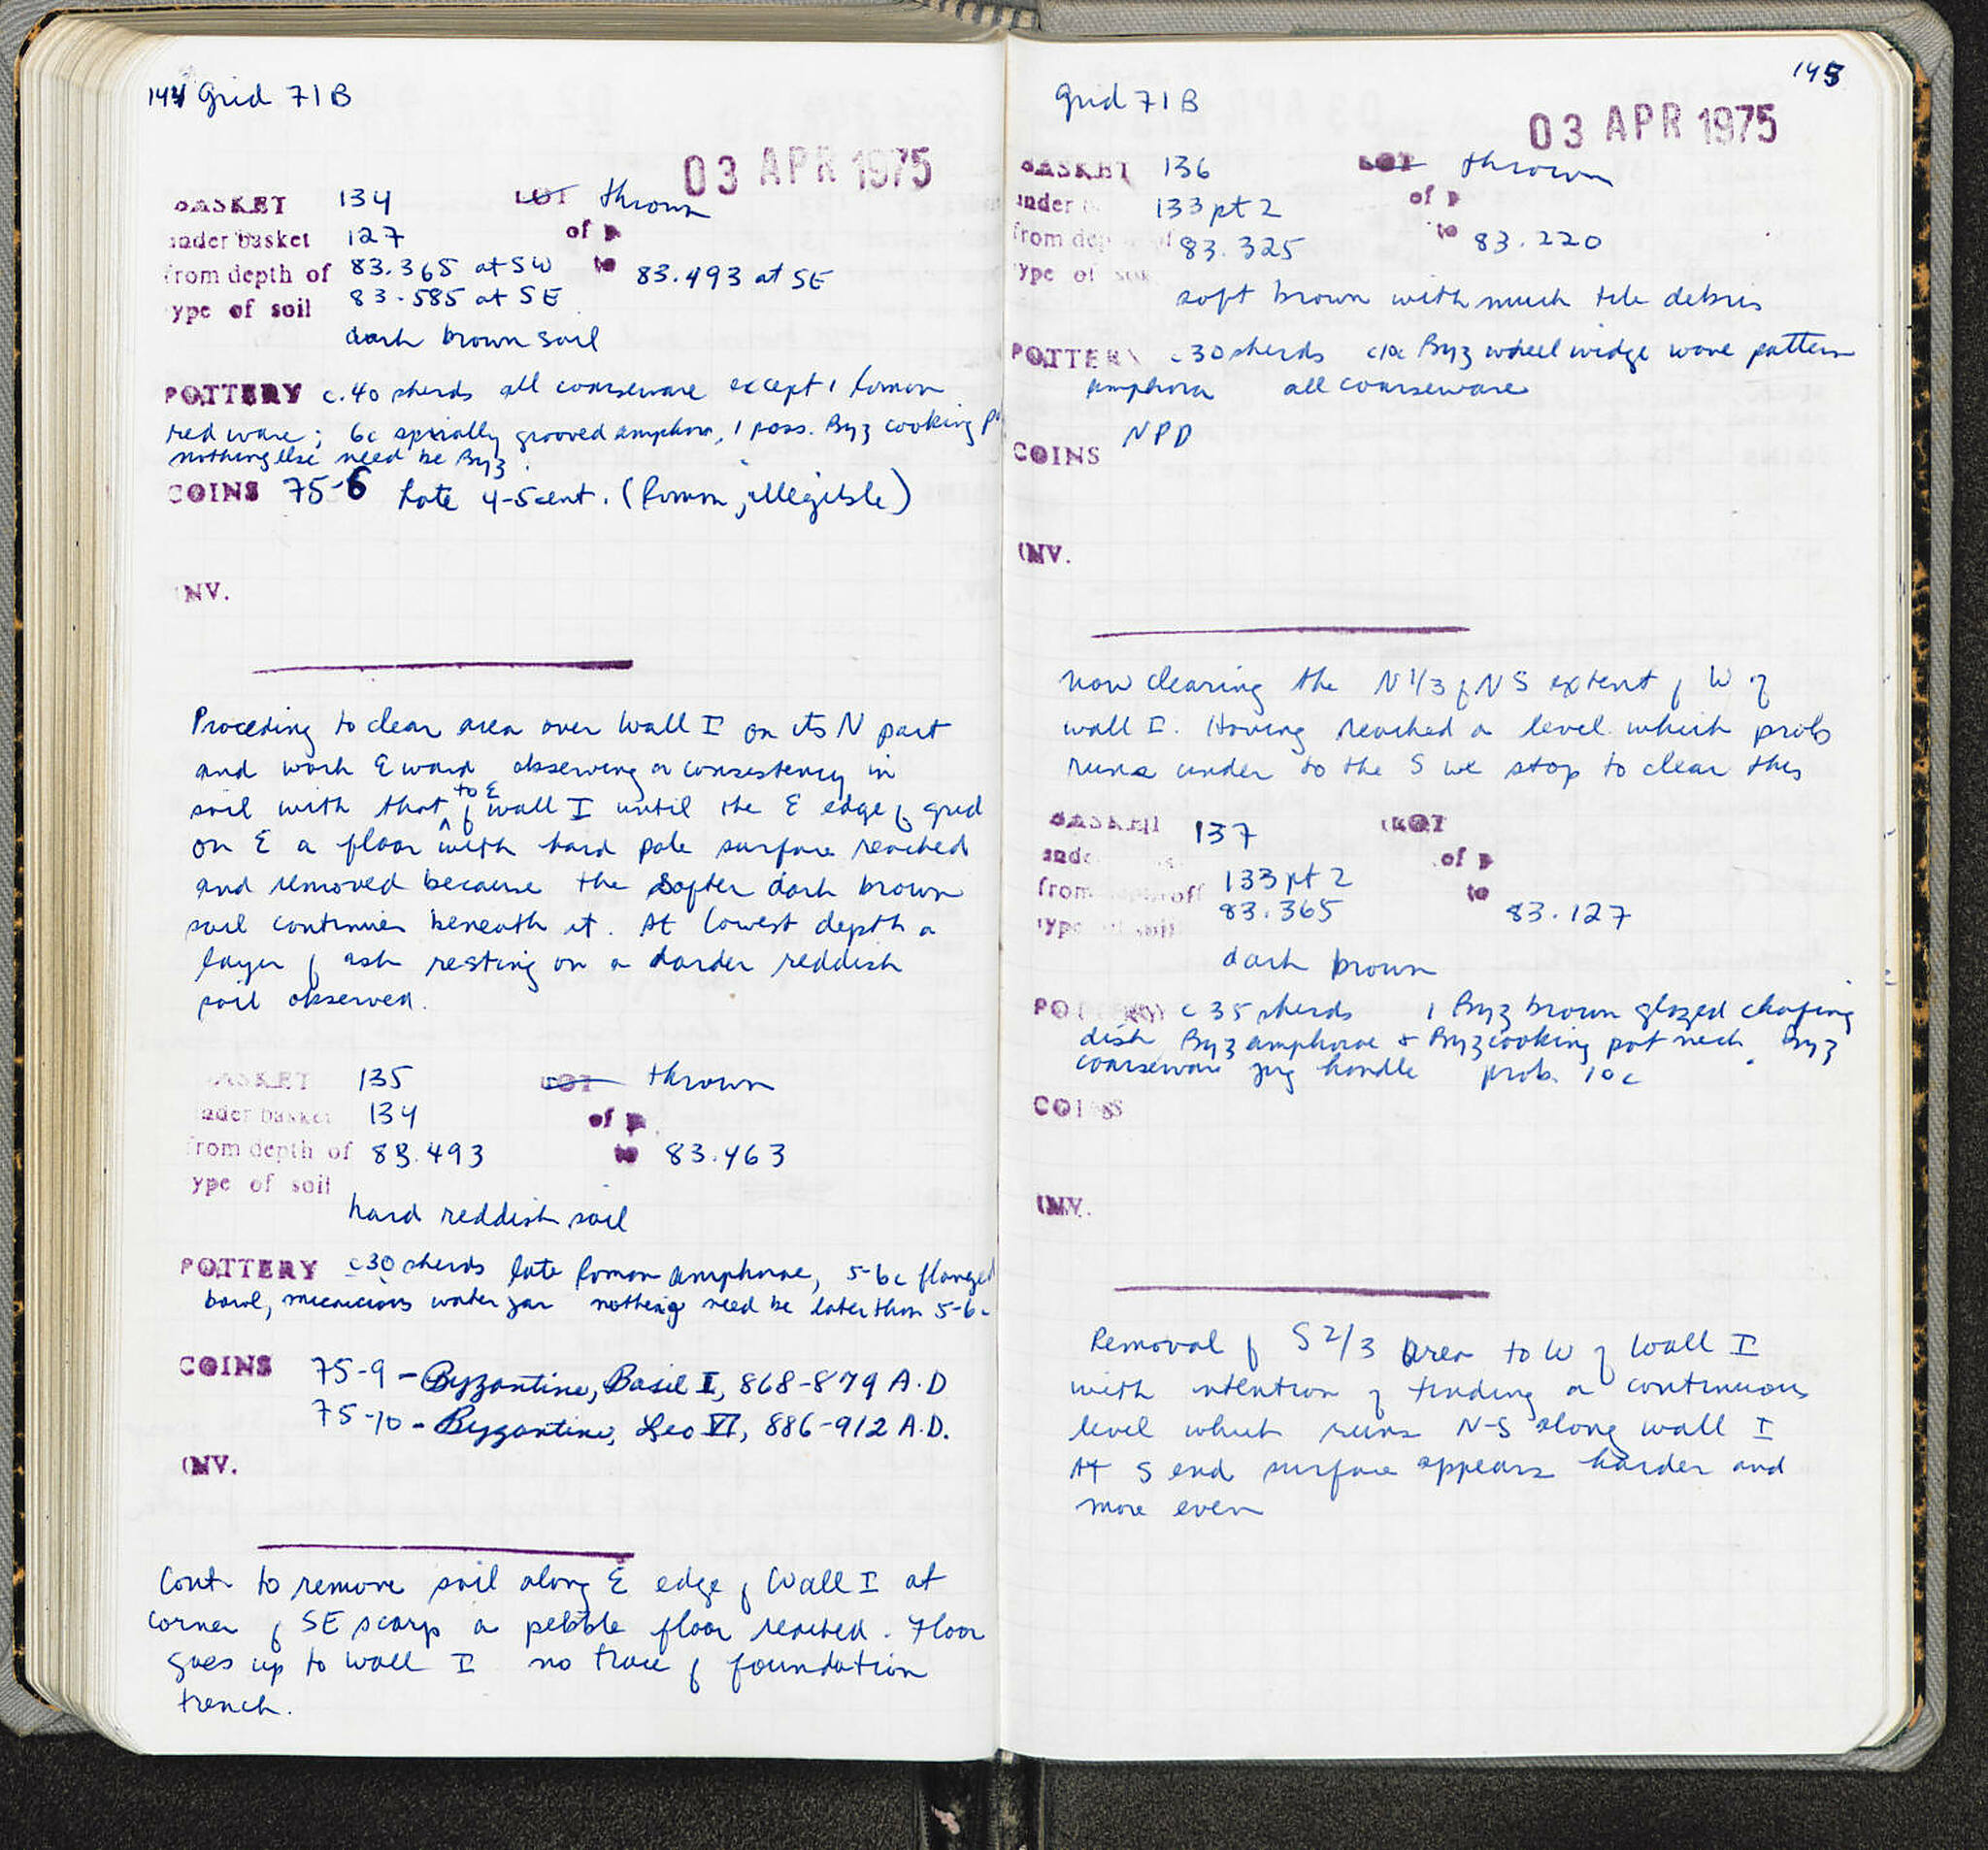 144 Grid 71B
03 APR 1975
BASKET 134 LOT thrown
under basket 127 of p
from depth of 83.365 at SW to 83.493 at SE
83.585 at SE
type of soil
dark brown soil
POTTERY c.40 sherds all coarseware except 1 Roman
red ware; 6c spirally grooved amphora, 1 poss. Byz cooking p
nothing else need be Byz.
COINS 75-6 Late 4-5 cent. (Roman, illegible)
INV.
Proceding to clear area over Wall I on its N part
and work Eward observing a consistency in
soil with that to E of wall I until the E edge of grid
on E a floor with hard pale surface reached
and removed because the softer dark brown
soil continues beneath it. At lowest depth a
layer of ash resting on a darder reddish
soil observed.
BASKET 135 LOT thrown
under basket 134 of p
from depth of 83.493 to 83.463
type of soil
hard reddish soil
POTTERY c30 sherds late Roman amphorae, 5-6c flanged
bowl, micacious water jar nothing need be later than 5-6c
COINS 75-9 - Byzantine, Basil I, 868-879 A.D
75-10 - Byzantine, Leo VI, 886-912 A.D.
INV.
Cont to remove soil along E edge of Wall I at
corner of SE scarp a pebble floor reached. Floor
goes up to wall I no trace of foundation
trench.
145
Grid 71B
03 APR 1975
BASKET 136 LOT thrown
under b 133 pt 2 of p
from depth of 83.325 to 83.220
type of soil
soft brown with much tile debris
POTTERY c30 sherds c10c Byz wheel ridge wave pattern
amphora all coarseware
NPD
COINS
INV.
now clearing the N 1/3 of NS extent of W of
wall I. Having reached a level which prob
runs under to the S we stop to clear this
BASKET 137 LOT
under 133 pt 2 of p
from depth of 83.365 to 83.127
type of soil
dark brown
POTTERY c 35 sherds 1 Byz brown glazed chafing
dish Byz amphorae + Byz cooking pot neck. Byz
coarseware jug handle prob. 10c
COINS
INV.
Removal of S 2/3 area to W of Wall I
with intention of finding a continuous
level which runs N-S along wall I
At S end surface appears harder and
more even